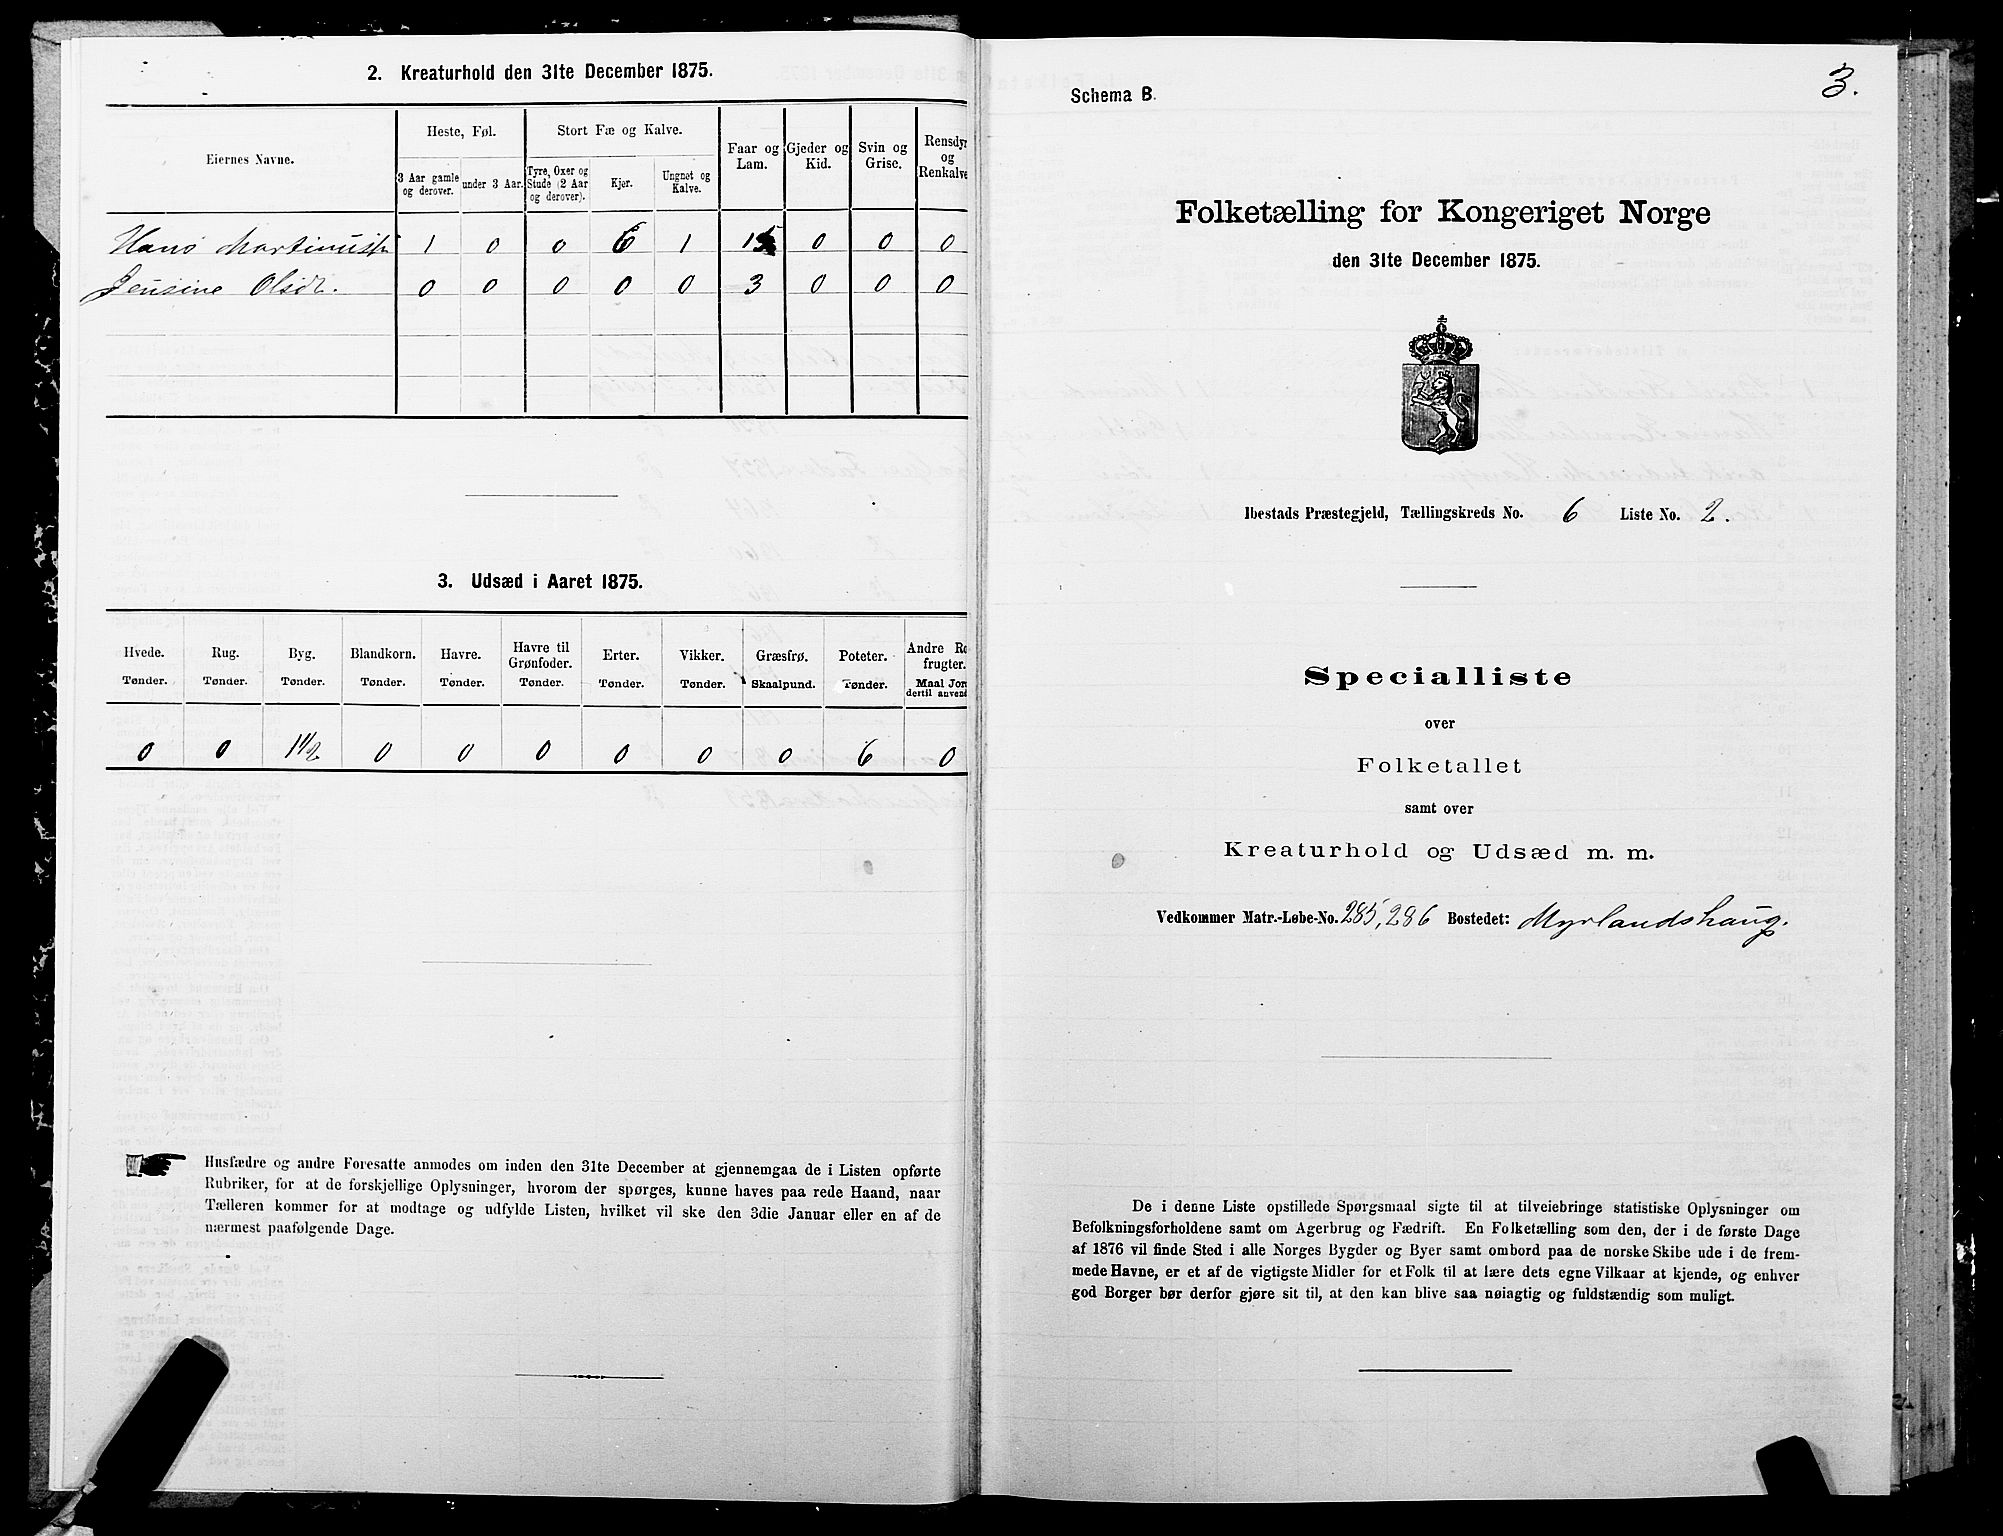 2. Kreaturhold den 31te December 1875.
Eiernes Navne.
Heste, Føl.
Stort Fæ og Kalve.
Faar og Lam.
Gjeder og Kid.
Svin og Grise.
Rensdyr og Renkalve
3 Aar gamle og derover.
under 3 Aar.
Tyre, Oxer og Stude (2 Aar og derover).
Kjør.
Ungnøt og Kalve.
Hans Martinuss. 1 0 0 6 1 15 0 0 0
Jensine Olsdt. 0 0 0 0 0 3 0 0 0
3. Udsæd i Aaret 1875.
Hvede. Rug. Byg. Blandkorn. Havre. Havre til Grønfoder. Erter. Vikker. Græsfrø. Poteter. Andre Ro frugter.
Tønder. Tønder. Tønder. Tønder. Tønder. Tønder. Tønder. Tønder. Skaalpund. Tønder. Maal Jor dertil anvend
0 0 1 1/2 0 0 0 0 0 0 6 0
Husfædre og andre Foresatte anmodes om inden den 31te December at gjennemgaa de i Listen opførte
Rubriker, for at de forskjellige Oplysninger, hvorom der spørges, kunne haves paa rede Haand, naar
Tælleren kommer for at modtage og udfylde Listen, hvilket vil ske den 3die Januar eller en af de
nærmest paafølgende Dage.
3.
Schema B.
Folketælling for Kongeriget Norge
den 31te December 1875.
Ibestads Præstegjeld, Tællingskreds No. 6 Liste No. 2.
Specialliste
over
Folketallet
samt over
Kreaturhold og Udsæd m. m.
Vedkommer Matr.-Løbe-No. 285, 286 Bostedet: Myrlandshaug.
De i denne Liste opstillede Spørgsmaal sigte til at tilveiebringe statistiske Oplysninger om
Befolkningsforholdene samt om Agerbrug og Fædrift. En Folketælling som den, der i de første Dage
af 1876 vil finde Sted i alle Norges Bygder og Byer samt ombord paa de norske Skibe ude i de frem-
mede Havne, er et af de vigtigste Midler for et Folk til at lære dets egne Vilkaar at kjende, og enhver
god Borger bør derfor gjøre sit til, at den kan blive saa nøiagtig og fuldstændig som muligt.